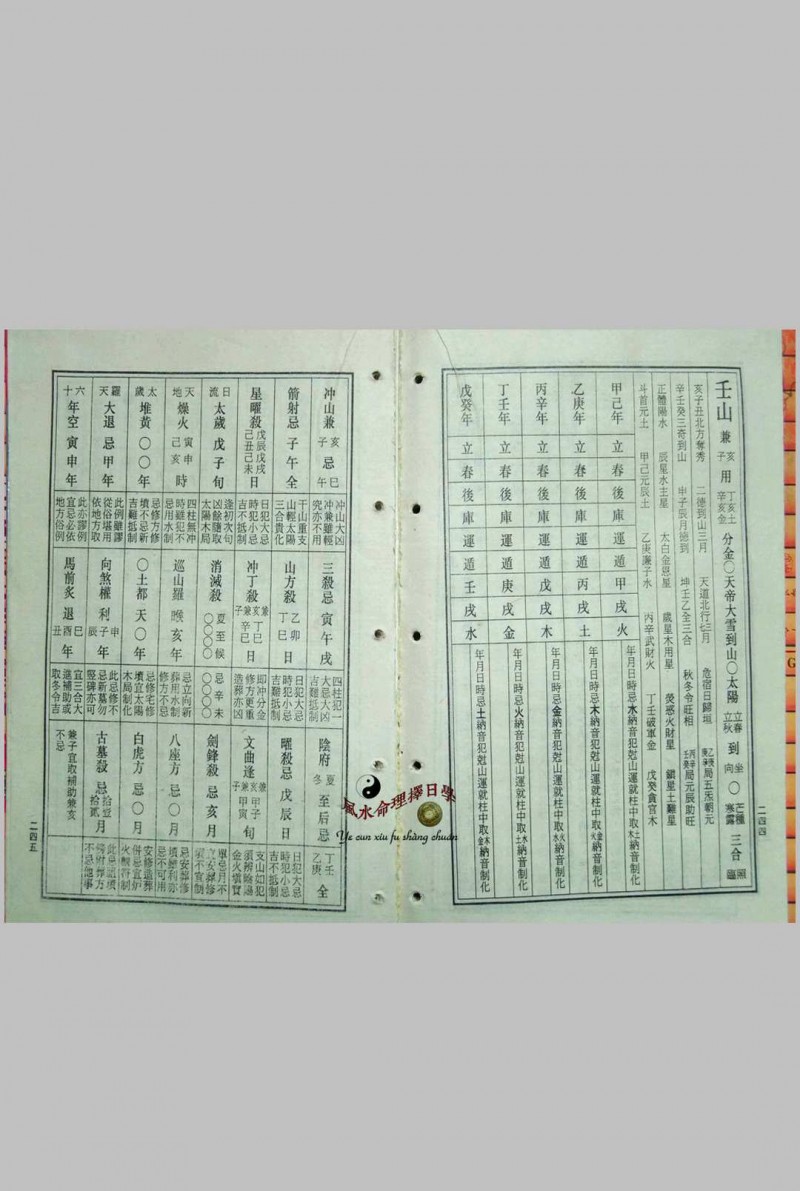 壬山 兼 亥子 用 丁亥土 辛亥金 分金〇天帝大雪到山〇太陽 立春 立秋 到 坐向 〇 芒種 寒露 三合 照臨
亥子丑北方奪秀 二德到山三月 天道北行七三月 危宿日歸垣
辛壬癸三奇到山 申子辰月德到 坤壬乙全三合 秋冬令旺相
正體陽水 辰星水主星 太白金恩星 歲星木用星 熒惑火財星 鎮星土難星
斗首元土 甲己元辰土 乙庚廉子水 丙辛武財火 丁壬破軍金 戊癸貪官木
甲己年 立春後庫運遁甲戌火 年月日時忌水納音犯剋山運就柱中取木土納音制化
乙庚年 立春後庫運遁丙戌土 年月日時忌木納音犯剋山運就柱中取火金納音制化
丙辛年 立春後庫運遁戊戌木 年月日時忌金納音犯剋山運就柱中取水火納音制化
丁壬年 立春後庫運遁庚戌金 年月日時忌火納音犯剋山運就柱中取土水納音制化
戊癸年 立春後庫運遁壬戌水 年月日時忌土納音犯剋山運就柱中取金木納音制化
二四四
冲山兼 亥子 忌 巳午
冲山大凶
冲兼雖輕
究亦不用
三殺忌 寅午戌
四柱犯一
大忌大凶
吉難抵制
陰府 夏冬 至后忌 丁壬 乙庚 全
箭射忌 子午全
干山重支
山輕太陽
三合貴化
山方殺 乙卯 丁巳 日
日犯大忌
時犯小忌
吉難抵制
曜殺忌 戊辰日
日犯大忌
時犯小忌
吉不抵制
星曜殺 戊辰戊戌 己丑己未 日
日犯大忌
時犯小忌
吉不抵制
冲丁殺 兼亥兼子 丁巳 辛巳 日
即冲分金
修方更重
造葬亦凶
文曲逢 兼亥兼子 甲子 甲寅 旬
支山如犯
金火填實
日流太歲 戊子旬
逢初次句
凶餘隨取
太陽木局
消滅殺 夏至候 〇〇〇〇 忌辛未 〇〇〇〇
劍鋒殺 忌亥月
單忌月不
天地燥火 寅申 己亥 時
四柱無冲
時雖犯不
忌用水制
巡山羅睺亥年
忌立向新
葬用水制
修方不忌
八座方 忌〇月
忌安葬修
忌不可用
太歲堆黃〇〇年
忌修方修
墳不忌新
吉難抵制
〇土都天〇年
忌修宅修
墳宜太陽
木局制化
白虎方 忌〇月
安修造葬
併忌宜炉
羅天大退 忌甲年
此例雖謬
從俗堪用
依地方取
向煞權利 申子辰 年
此忌修不
忌新墓勿
竪碑亦可
古墓殺 忌 拾壹 拾貳 月
不忌他事
六十年空 寅申年
此亦謬例
宜忌必依
地方俗例
馬前炙退 巳酉丑 年
宜三合大
進補助或
取冬令吉
兼子宜取補助兼亥
不忌
二四五
風水命理擇日學
Ye cun xiu fu shàng chuán
G